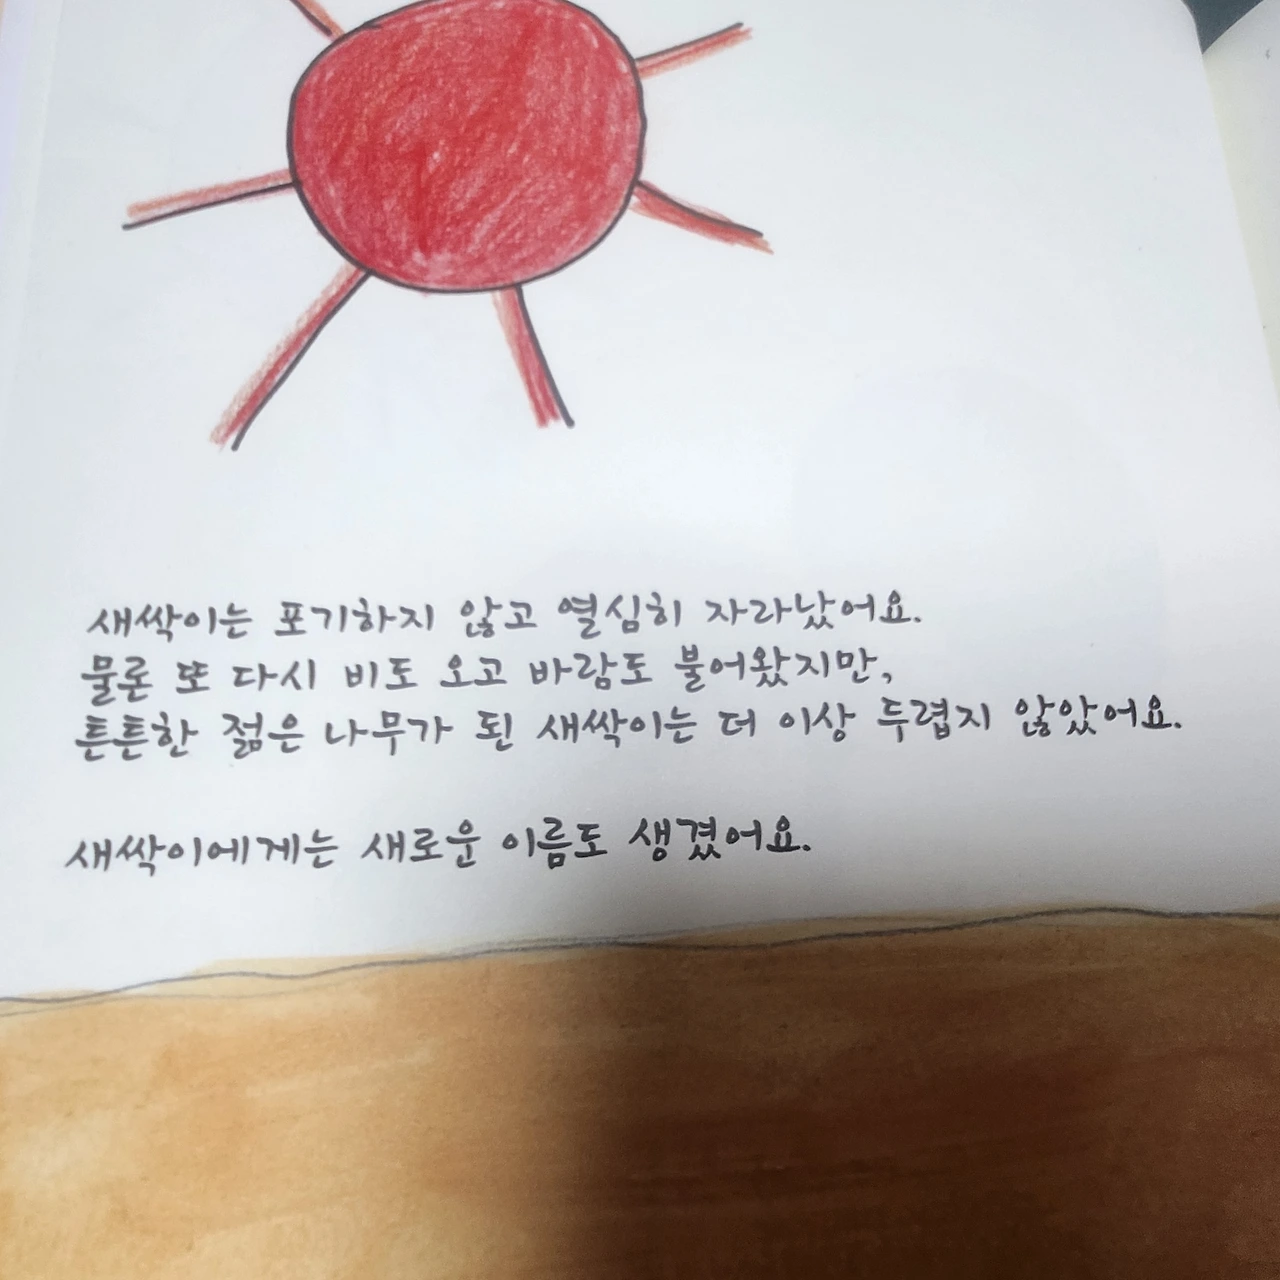 새싹이는 포기하지 않고 열심히 자라났어요.
물론 또 다시 비도 오고 바람도 불어왔지만,
튼튼한 젊은 나무가 된 새싹이는 더 이상 두렵지 않았어요.
새싹이에게는 새로운 이름도 생겼어요.